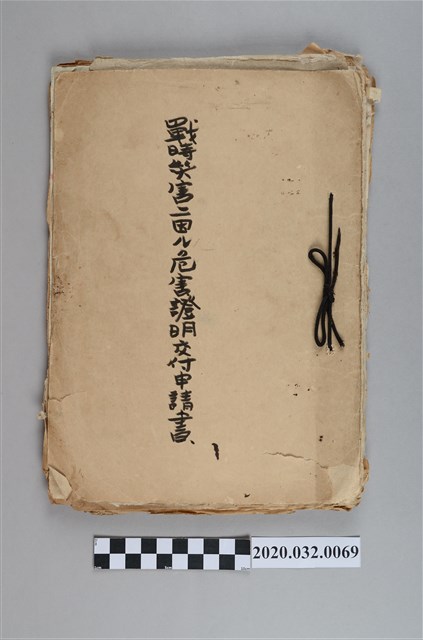 戰時災害ニ因ル危害證明交付申請書、
2020.032.0069